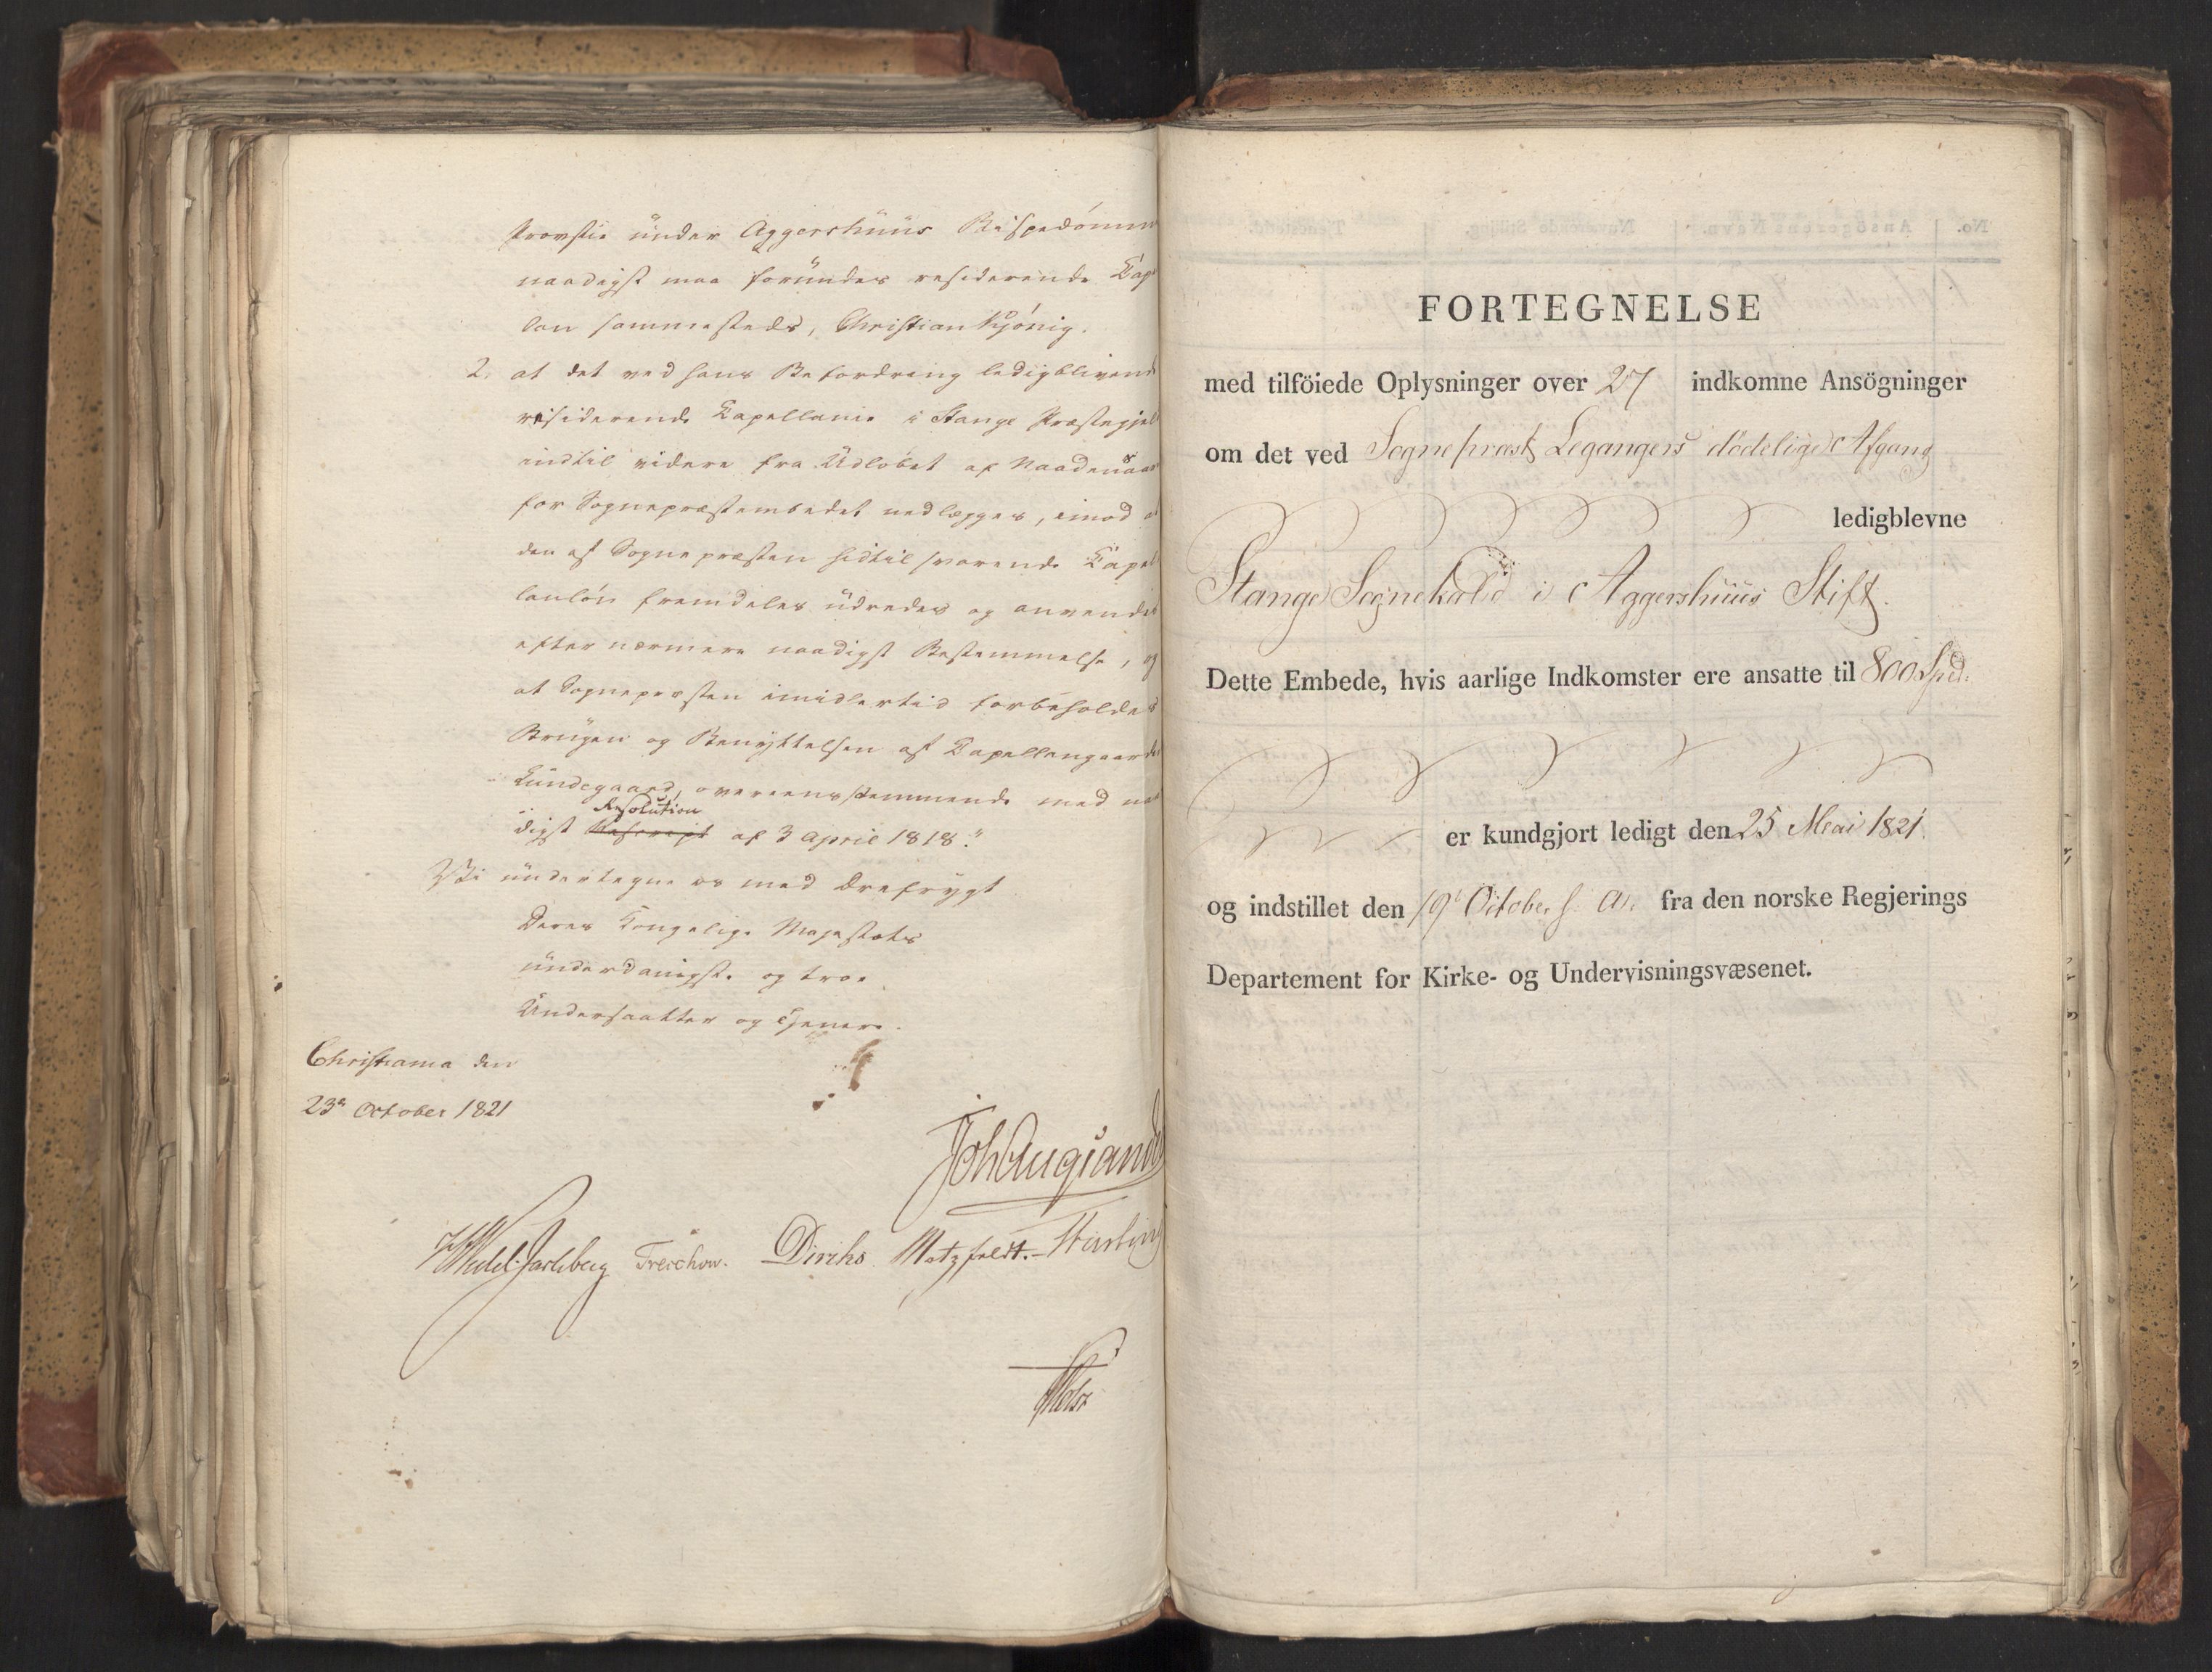 Provstie under Aggershuus Bispedømme
naadigst maa forundes residerende Cap
lan sammesteds, Christian Kjönig.
2. at det ved hans Befordring ledigblivend
residerende Capellanie i Stange Præstegjel
indtil videre fra Udløbet af Naadensaar
for Sognepræstembedet nedlægges, imod a
den af Sognepræsten hidtil svarende Capel
lanløn fremdeles udredes og anvendes
efter nærmere naadigst Bestemmelse, og
at Sognepræsten imidlertid forbeholdes
Brugen og Benyttelsen af Capellangaarden
Lundegaard, overeensstemmende med naa
Resolution
digst Rescript af 3 April 1818."
Vi undertegne os med Ærefrygt
Deres Kongelige Majestæts
underdanigste og troe
Undersaatter og Tjenere.
Christiania den
23de October 1821
Joh Aug Sande
HWedel-Jarlsberg Treschow. Diriks Motzfeldt. -
Holst
No. Ansögerens Navn. Nuværende Stilling.
FORTEGNELSE
med tilföiede Oplysninger over 27 indkomne Ansögninger
om det ved Sognepræst Legangers dødelige Afgang
ledigblevne
Stange Sognekald i Aggershuus Stift.
Dette Embede, hvis aarlige Indkomster ere ansatte til 800 Spd:
er kundgjort ledigt den 25 Mai 1821.
og indstillet den 19 October s. A. fra den norske Regjerings
Departement for Kirke- og Undervisningsvæsenet.